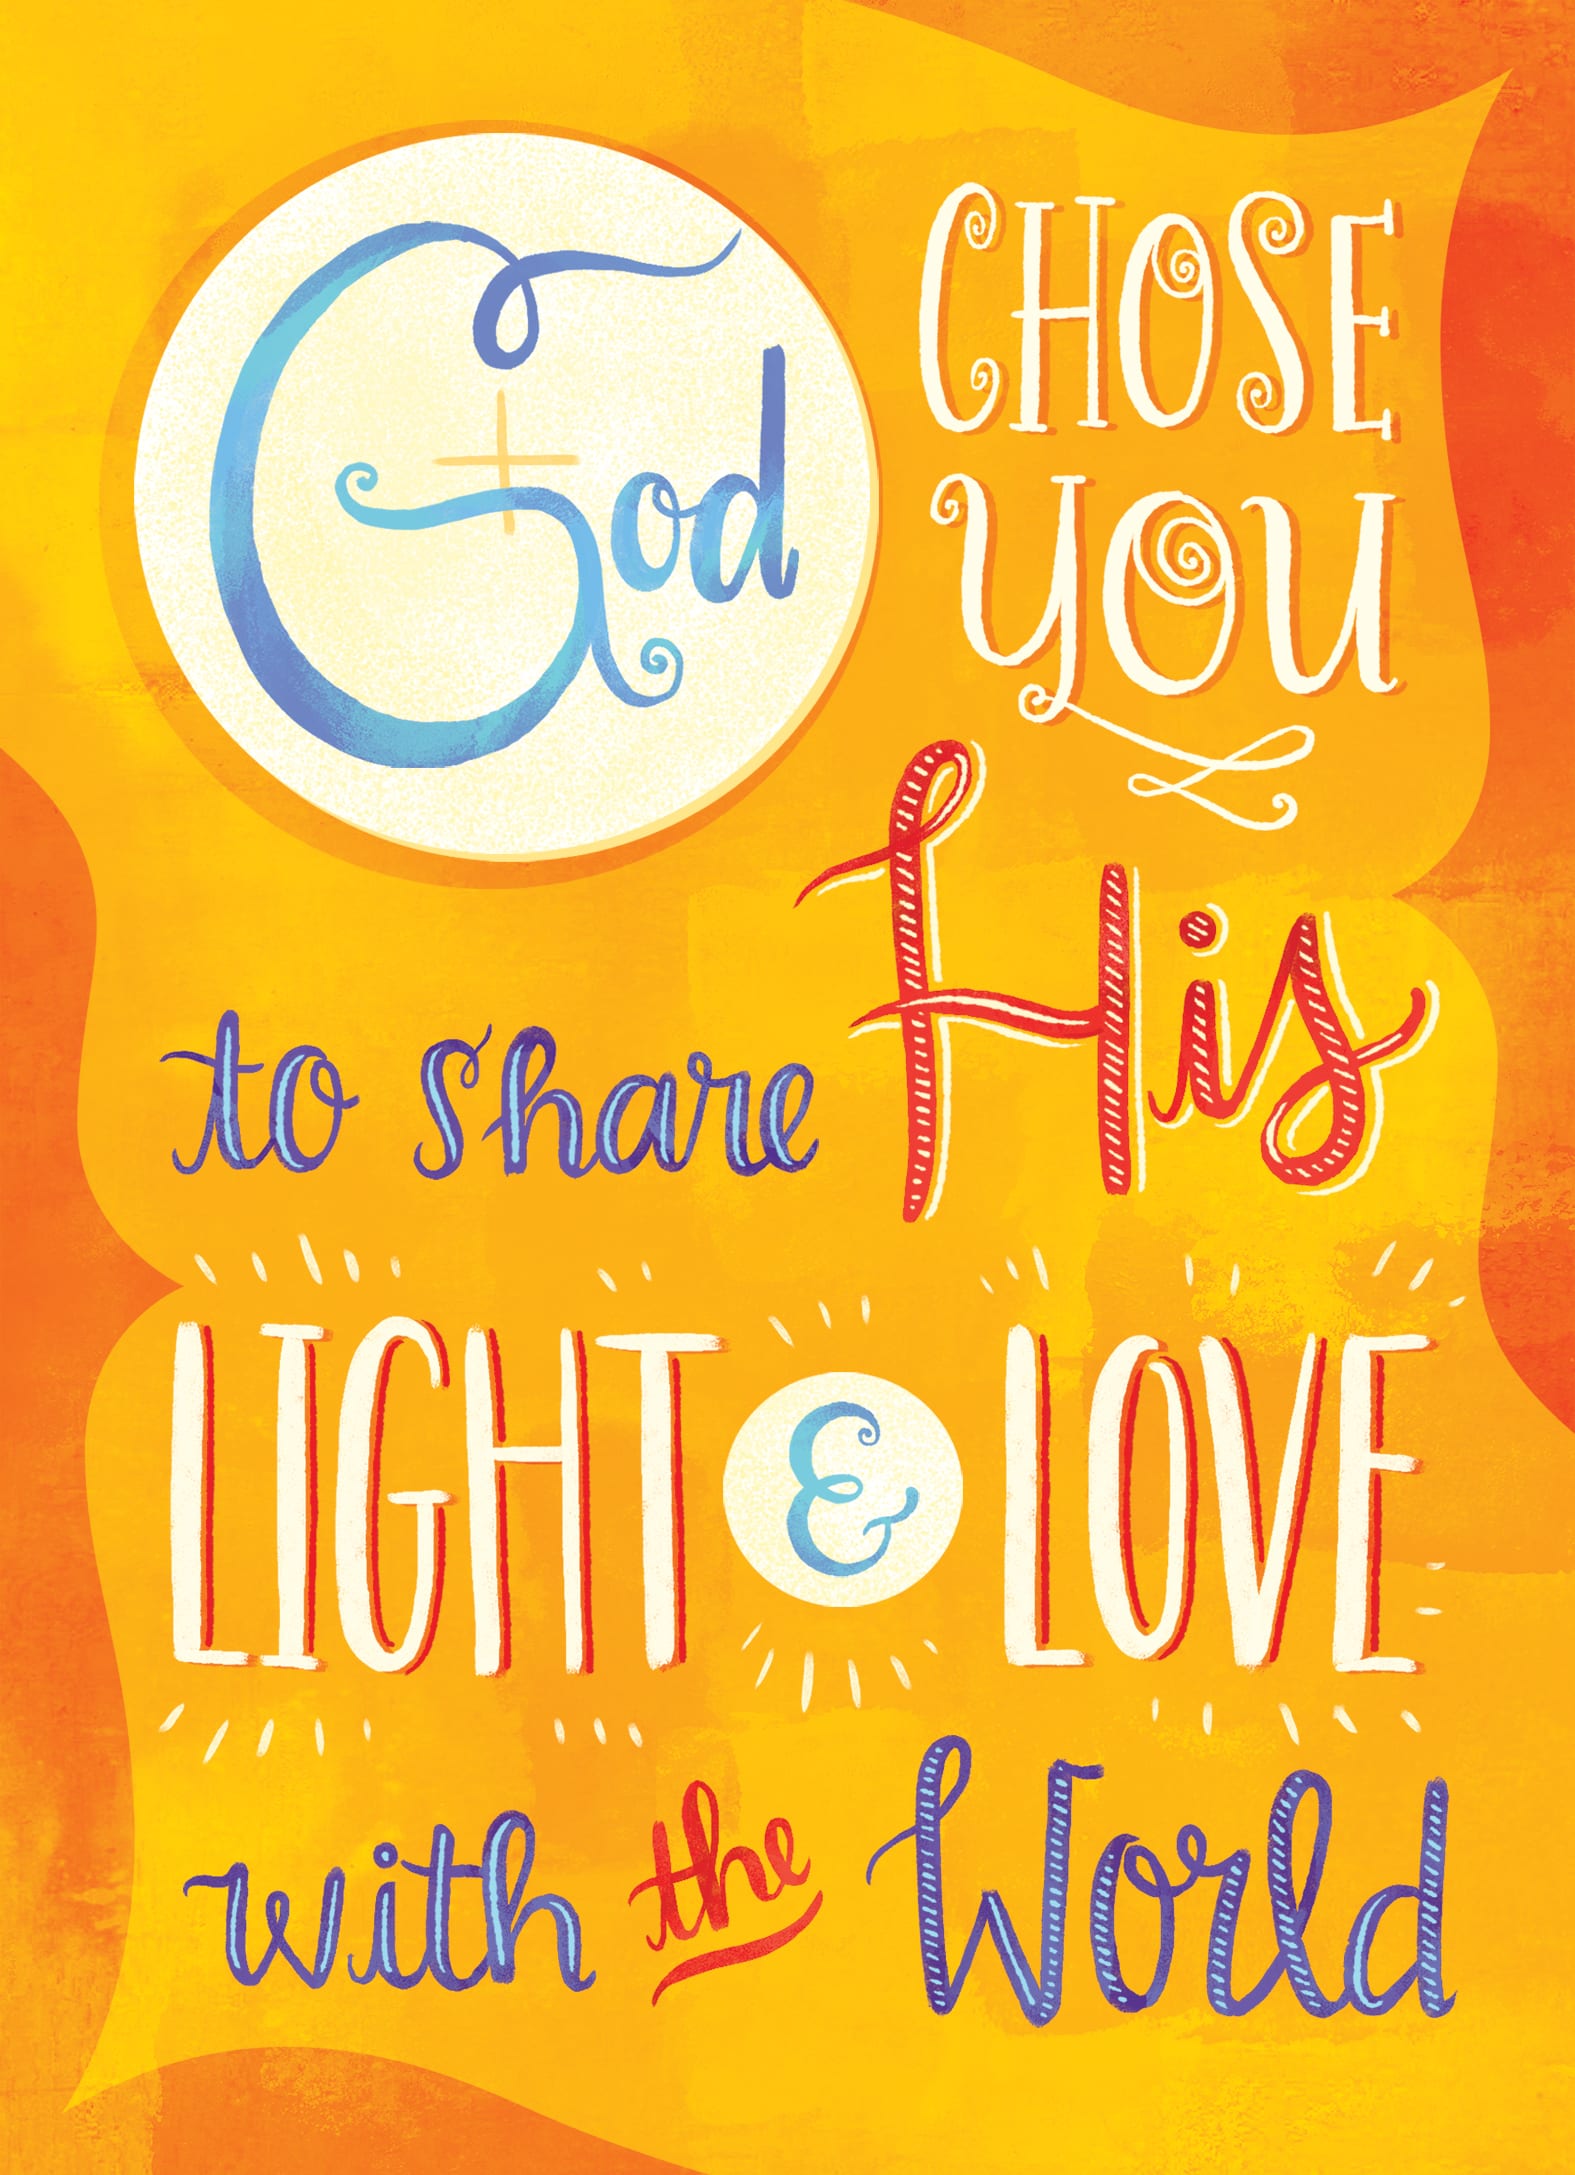 God
CHOSE
YOU
to share His
LIGHT & LOVE
with the World